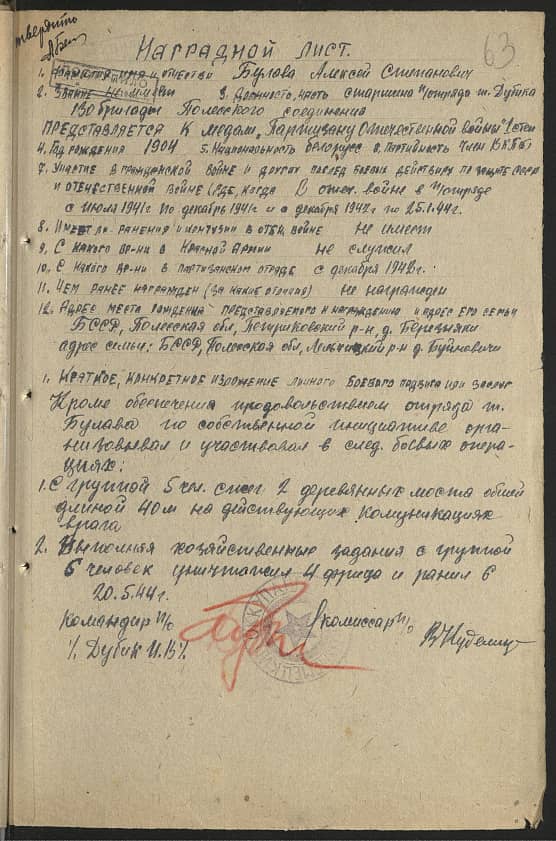 63
Наградной лист.
1. Фамилия имя и отчество Булава Алексей Степанович
2. Звание не имеет 3. Должность, часть старшина п/отряда т. Дубика
130 бригады Полесского соединения
Представляется к медали „Партизану Отечественной войны" I степ
4. Год рождения 1904 5. Национальность белорусс 6. Партийность член ВКП(б)
7. Участие в гражданской войне и других послед боевых действиях по защите СССР
и отечественной войне (где, когда В отеч. войне в п/отряде
с июля 1941г по декабрь 1941г и с декабря 1942г по 25.1.44г.
8. Имеет ли ранения и контузии в отеч. войне не имеет
9. С какого вр-ни в Красной Армии не служил
10. С какого вр-ни в партизанском отряде с декабря 1942г.
11. Чем ранее награжден (за какие отличия) не награжден
12. Адрес места рождения представляемого к награждению и адрес его семьи
БССР, Полесская обл, Петриковский р-н, д. Березняки
адрес семьи: БССР, Полесская обл, Лельчицкий р-н д. Буйновичи
1. Краткое, конкретное изложение личного боевого подвига или заслуг
Кроме обеспечения продовольствием отряда т.
Булава по собственной инициативе орга-
низовывал и участвовал в след. боевых опера-
циях:
1. С группой 5 чел. сжег 2 деревянных моста общей
длиной 40м на действующих комуникациях
врага
2. Выполняя хозяйственные задания с группой
5 человек уничтожил 4 фрица и ранил 6
20.5.44г.
Командир п/о комиссар п/о
/. Дубик И.В/.